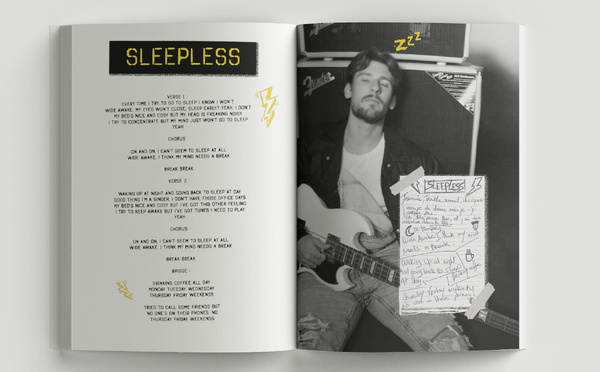 SLEEPLESS
VERSE 1:
EVERY TIME I TRY TO GO TO SLEEP I KNOW I WON'T
WIDE AWAKE, MY EYES WON'T CLOSE, SLEEP EARLY? YEAH, I DON'T
MY BED'S NICE AND COSY BUT MY HEAD IS FREAKING NOISY
I TRY TO CONCENTRATE BUT MY MIND JUST WON'T GO TO SLEEP
YEAH
CHORUS:
ON AND ON, I CAN'T SEEM TO SLEEP AT ALL
WIDE AWAKE, I THINK MY MIND NEEDS A BREAK
BREAK BREAK
VERSE 2:
WAKING UP AT NIGHT AND GOING BACK TO SLEEP AT DAY
GOOD THING I'M A SINGER, I DON'T HAVE THOSE OFFICE DAYS
MY BED'S NICE AND COSY BUT I'VE GOT THIS OTHER FEELING
I TRY TO KEEP AWAKE BUT I'VE GOT TUNES I NEED TO PLAY
YEAH
CHORUS:
ON AND ON, I CAN'T SEEM TO SLEEP AT ALL
WIDE AWAKE, I THINK MY MIND NEEDS A BREAK
BREAK BREAK
BRIDGE:
DRINKING COFFEE ALL DAY
MONDAY TUESDAY WEDNESDAY
THURSDAY FRIDAY WEEKENDS
TRIED TO CALL SOME FRIENDS BUT
NO ONE'S ON THEIR PHONES, NO
THURSDAY FRIDAY WEEKENDS
ZZZ
Fender
SLEEPLESS